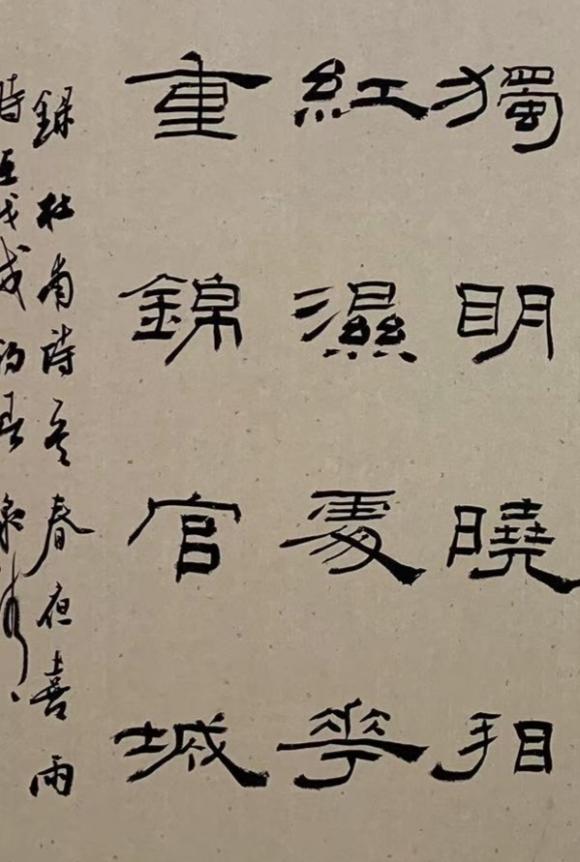 獨明曉看
紅濕處花
重錦官城
錄杜甫詩春夜喜雨
時在戊戌初春